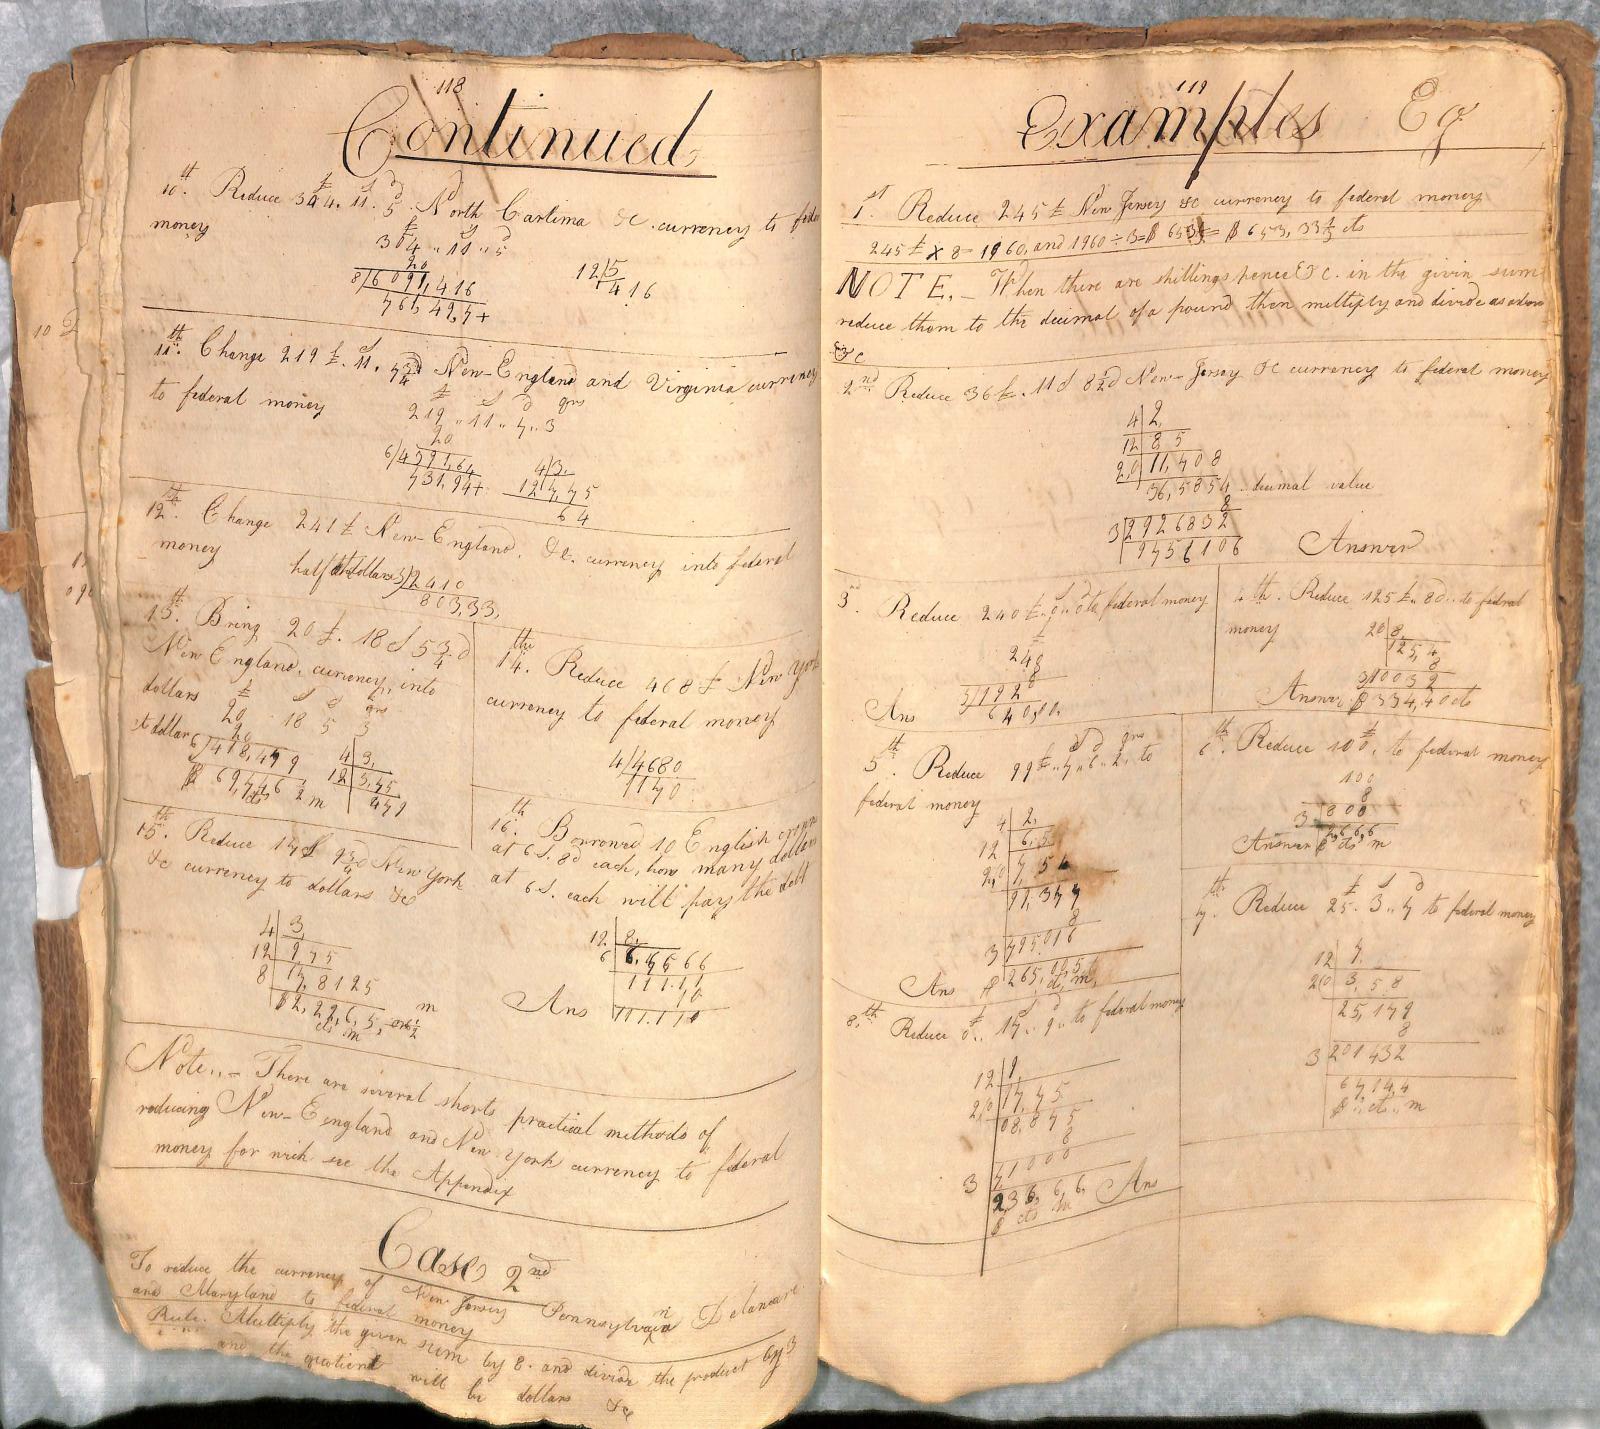 118
Continued
10th. Reduce 344£. 11s. 5d North Carlima &c. currency to fede
money
£ s d
304 .. 11 .. 5
20
8/6091,416
761,427+
12/5
416
11th. Change 219£. s. 11. 7 3/4d New-England and Virginia currency
to federal money
£ s d qrs
219 .. 11 .. 7 .. 3
20
6/4591,64
731,94+
4/3,
12/7,75
64
12th. Change 241£ New-England, &c. currency into federal
money
half dollars 3/2410
803,33,
13th. Bring 20£. 18s 5 3/4d
New England, currency, into
dollars
£ s d qrs
20 18 5 3
20
6/418,479
$ 69,746 2
cts m
4 3,
12 5,75
479
14the. Reduce 468£ New York
currency to federal money
4/4680
1170
15th. Reduce 17s 9 3/4d New York
&c currency to dollars &c
4 3,
12 9,75
8 17,8125
$2,22,6,5,
cts m
16th. Borrowed 10 English crown
at 6s. 8d each, how many dollars
at 6s. each will pay the debt
12 8,
6 6,6666
111.11
10
Ans 111.110
Note,. - There are several shorts practical methods of
reducing New-Eengland and New York currency to federal
money for wich see the Appendix
Case 2nd
To reduce the currency of New Jersey Pennsylvania Delaware
and Maryland to federal money
Rule. Multiply the given sum by 8. and divide the product by 3
and the quotient will be dollars &c
119
Examples Eg
1st. Reduce 245£ New Jersey &c currency to federal money
245£ x 8= 1960, and 1960 ÷ 3=$ 653 1/3= $ 653, 33 1/3 cts
NOTE,- When there are shillings pence &c. in the givin sum
reduce them to the decimal of a pound then multiply and divide as above
&c
2nd Reduce 36£. 11s 8 1/2d New-Jersey &c currency to federal money
4 2,
12 8 5
2,0 11,408
36,5854 .. decimal value
8
3 2926832
9756106 Answer
3. Reduce 240£..0..0 to federal money
£
240
8
3/1920
Ans 640,00.
4th. Reduce 125£..8s.. to fedral
money
20 8,
125,4
8
3 10032
Answer $334,40 cts
5th. Reduce 99£..7..6..2, to
s d qrs
federal money
4 2,
12 6,5
2,0 7,54
99,377
8
3 795016
265,005
Ans $ cts m,
6th. Reduce 100£, to federal money
100
8
3 800
2,6,6,6
Answer $ cts m
7th. Reduce 25. 3..7 to federal money
£ s d
12 7.
20 3,58
25,179
8
3 201432
67,144
$ .. cts .. m
8,th Reduce 0.. 17.. 9.. to federal money
£ s d
12 9,
20 17,75
08,875
8
3 71000
236,6,6, Ans
$ cts m